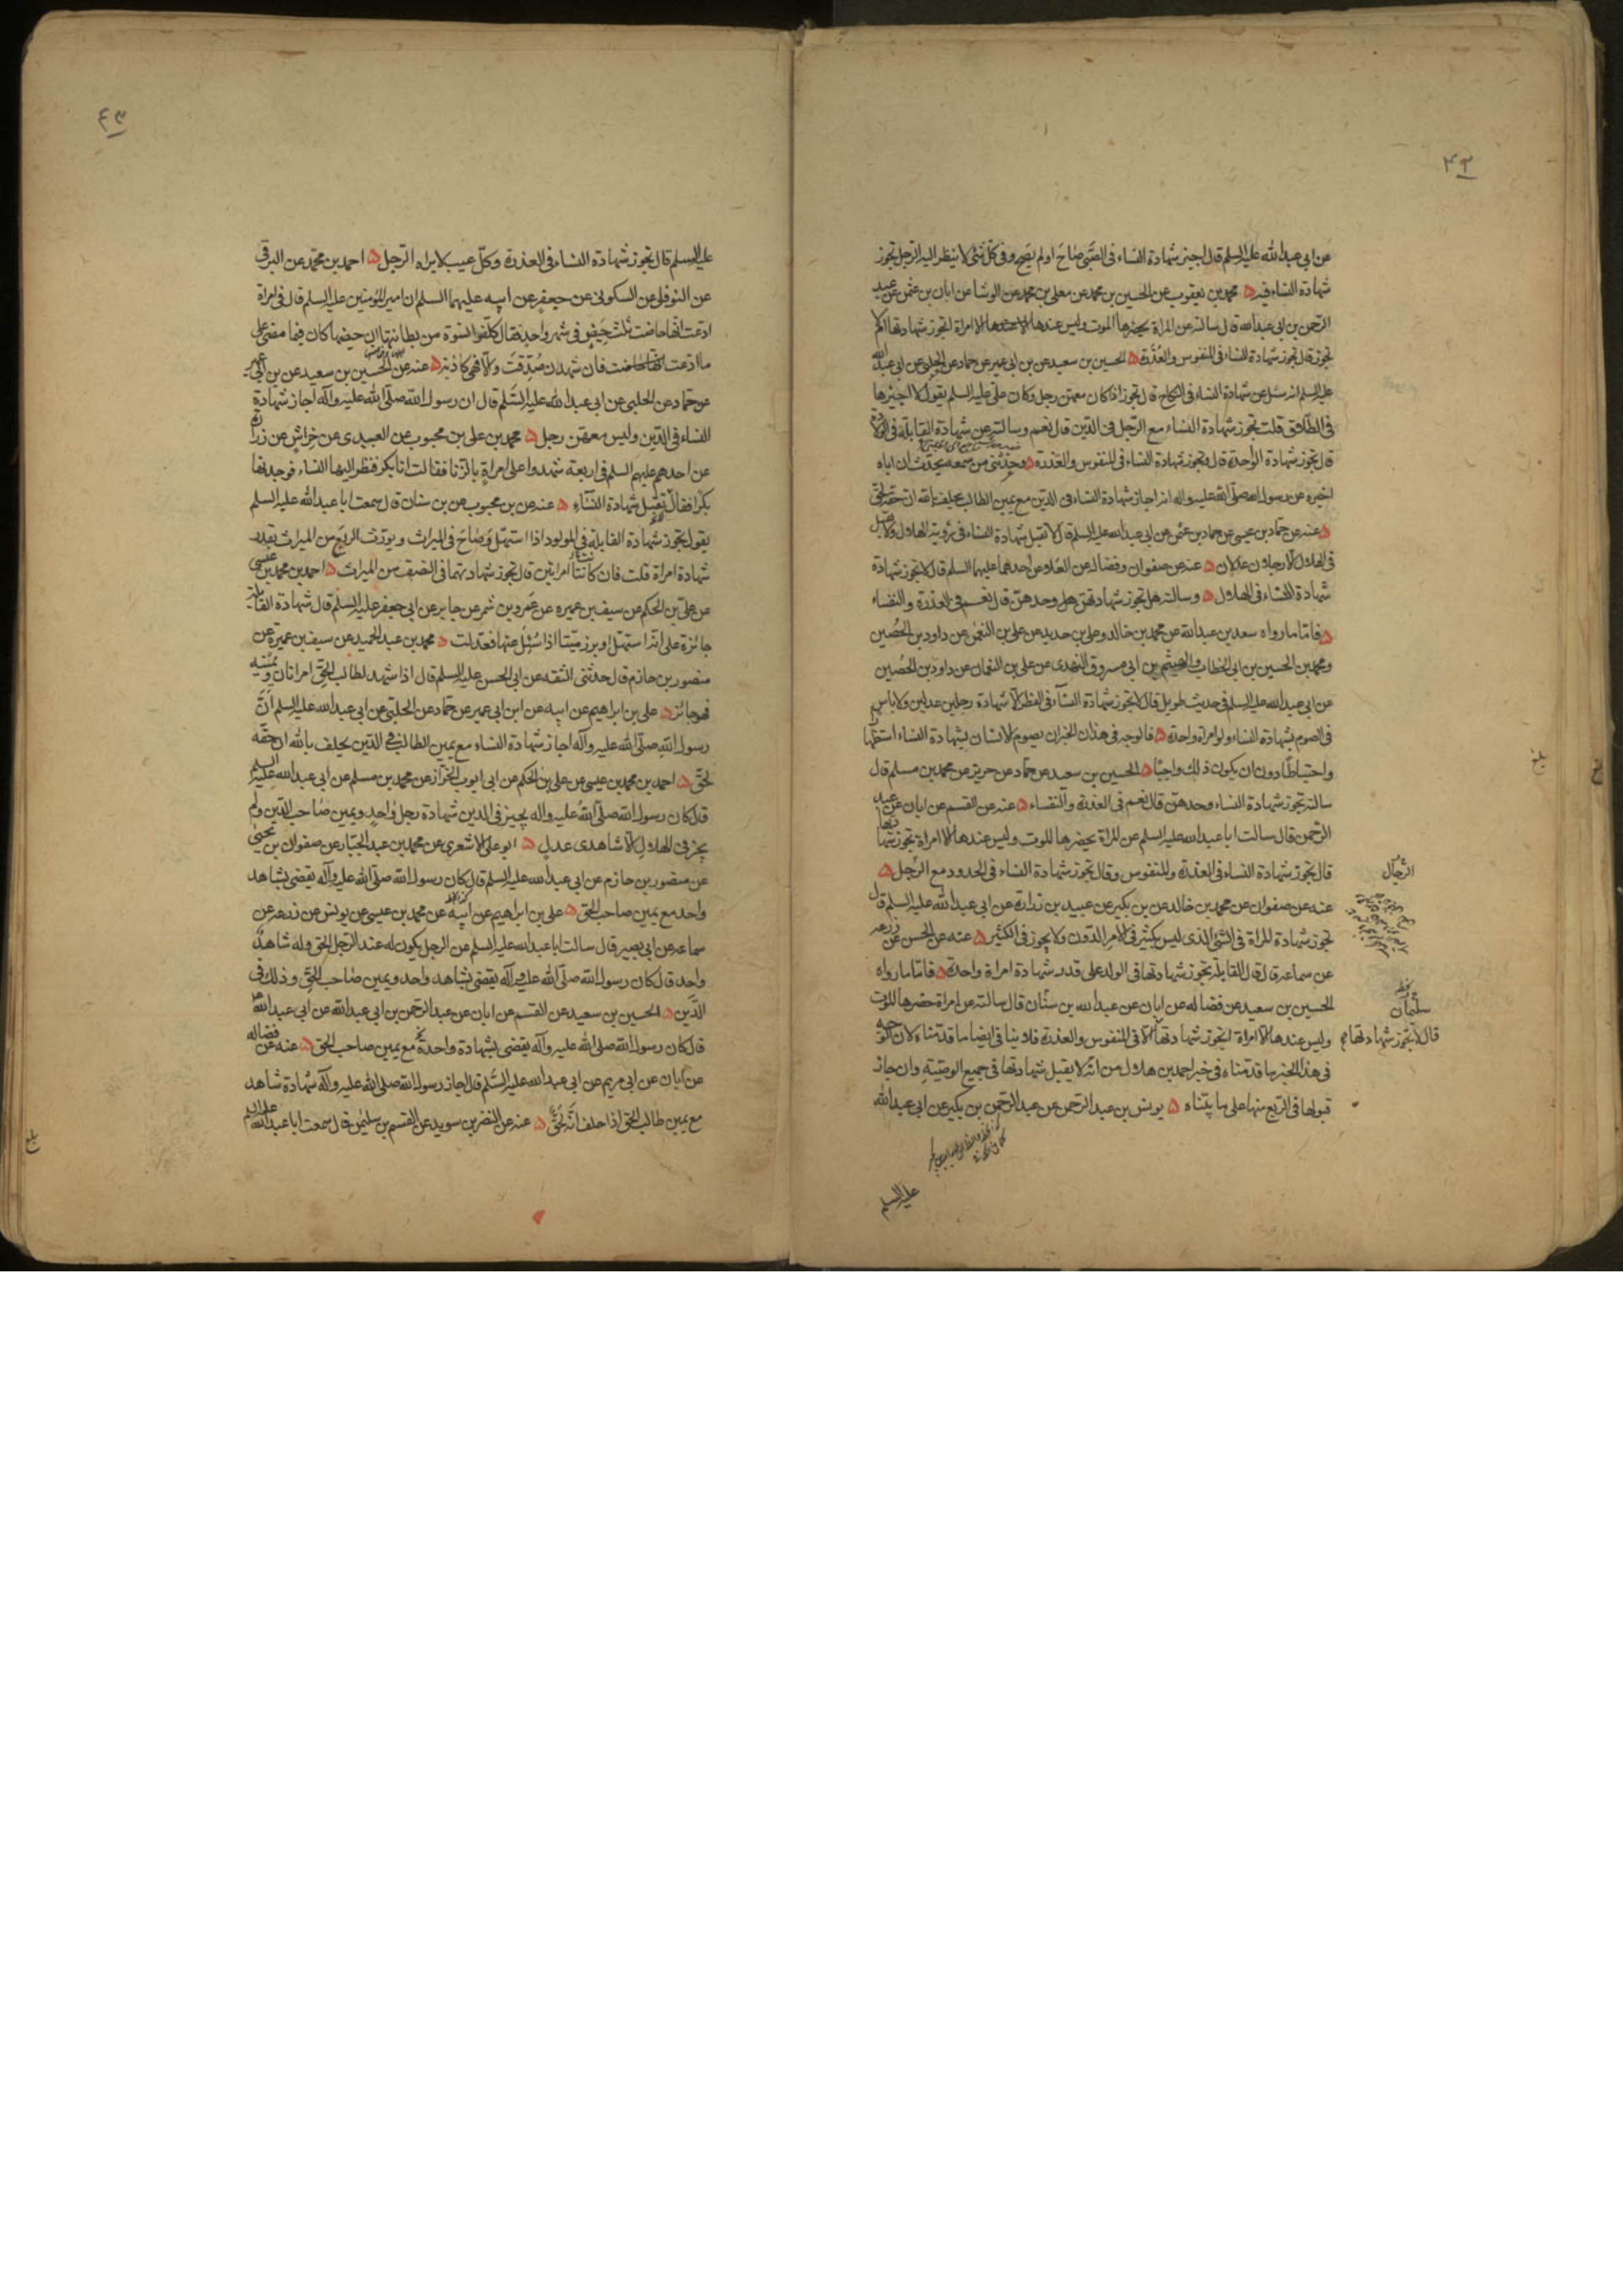 ٤٢
عن ابی عبد الله علیه السلم قال اجیز شهادة النساء فی الصبی صاح او لم یصح وفی کل شئ لا ینظر الیه الرجل تجوز
شهادة النساء فیه ۵ محمد بن یعقوب عن الحسین بن محمد عن معلی بن محمد عن الوشا عن ابان بن عثمن عن عبد
الرحمن بن ابی عبد الله قال سالته عن المراة یحضرها الموت ولیس عندها الا امراة اتجوز شهادتها ام لا
تجوز قال تجوز شهادة النساء فی المنفوس والعذرة ۵ الحسین بن سعید عن بن ابی عمیر عن حماد عن الحلبی عن ابی عبد الله
علیه السلم انه سئل عن شهادة النساء فی النکاح قال تجوز اذا کان معهن رجل وکان علی علیه السلم یقول لا اجیزها
فی الطلاق قلت تجوز شهادة النساء مع الرجل فی الدین قال نعم وسالته عن شهادة القابلة فی الولادة
قال تجوز شهادة الواحدة قال وتجوز شهادة النساء فی المنفوس والعذرة ۵ وحدثنی من سمعه یحدث ان اباه
اخبره عن رسول الله صلی الله علیه واله انه اجاز شهادة النساء فی الدین مع یمین الطالب یحلف بالله ان حقه لحق
۵ عنه عن حماد بن عیسی عن حماد بن عثمن عن ابی عبد الله علیه السلم قال لا تقبل شهادة النساء فی رؤیة الهلال ولا یقبل
فی الهلال الا رجلان عدلان ۵ عنه عن صفوان وفضاله عن العلا عن احدهما علیهما السلم قال لا تجوز شهادة
شهادة النساء فی الهلال ۵ وسالته هل تجوز شهادتهن وحدهن قال نعم فی العذرة والنفساء
۵ فاما ما رواه سعد بن عبد الله عن محمد بن خالد وعلی بن حدید عن علی بن النعمن عن داود بن الحصین
ومحمد بن الحسین بن ابی الخطاب والهیثم بن ابی مسروق النهدی عن علی بن النعمان عن داود بن الحصین
عن ابی عبد الله علیه السلم فی حدیث طویل قال لا تجوز شهادة النساء فی الفطر الا شهادة رجلین عدلین ولا باس
فی الصوم بشهادة النساء ولو امراة واحدة ۵ فالوجه فی هذان الخبران یصوم الانسان بشهادة النساء استظهارا
واحتیاطا دون ان یکون ذلك واجبا ۵ الحسین بن سعید عن حماد عن حریز عن محمد بن مسلم قال
سالته تجوز شهادة النساء وحدهن قال نعم فی العذرة والنفساء ۵ عنه عن القسم عن ابان عن عبد
الرحمن قال سالت ابا عبد الله علیه السلم عن المراة یحضرها الموت ولیس عندها الا امراة تجوز شهادتها
قال تجوز شهادة النساء فی العذرة والمنفوس وقال تجوز شهادة النساء فی الحدود مع الرجل ۵
الرجال
عنه عن صفوان عن محمد بن خالد عن بن بکیر عن عبید بن زرارة عن ابی عبد الله علیه السلم قال
تجوز شهادة المراة فی الشئ الذی لیس بکثیر فی الامر الدون ولا یجوز فی الکثیر ۵ عنه عن الحسن عن زرعه
عن سماعه قال قال القابلة تجوز شهادتها فی الولد علی قدر شهادة امراة واحدة ۵ فاما ما رواه
الحسین بن سعید عن فضاله عن ابان عن عبد الله بن سنان قال سالته عن امراة حضرها الموت
سلیمان
ولیس عندها الا امراة اتجوز شهادتها الا فی المنفوس والعذرة فلا ینافی ایضا ما قدمناه لان الوجه
قال لا تجوز شهادتها
فی هذا الخبر ما قدمناه فی خبر احمد بن هلال من انه لا یقبل شهادتها فی جمیع الوصیة وان جاز
قبولها فی الربع منها علی ما بیناه ۵ یونس بن عبد الرحمن عن عبد الرحمن بن بکیر عن ابی عبد الله
علیه السلم
٤٣
علیه السلم قال تجوز شهادة النساء فی العذرة وکل عیب لا یراه الرجل ۵ احمد بن محمد عن البرقی
عن النوفلی عن السکونی عن جعفر عن ابیه علیهما السلم ان امیر المؤمنین علیه السلم قال فی امراة
ادعت انها حاضت ثلث حیض فی شهر واحد فقال کلفوا نسوة من بطانتها ان حیضها کان فیما مضی علی
ما ادعت فان شهدن صدقت والا فهی کاذبة ۵ عنه عن الحسین بن سعید عن بن ابی عمیر
عن حماد عن الحلبی عن ابی عبد الله علیه السلم قال ان رسول الله صلی الله علیه وآله اجاز شهادة
النساء فی الدین ولیس معهن رجل ۵ محمد بن علی بن محبوب عن العبیدی عن خراش عن زرارة
عن احدهم علیهم السلم فی اربعة شهدوا علی امراة بالزنا فقالت انا بکر فنظر الیها النساء فوجدنها
بکرا فقال تقبل شهادة النساء ۵ عنه عن بن محبوب عن بن سنان قال سمعت ابا عبد الله علیه السلم
یقول تجوز شهادة القابلة فی المولود اذا استهل وصاح فی المیراث ویورث الربع من المیراث بقدر
شهادة امراة قلت فان کانتا امراتین قال تجوز شهادتهما فی النصف من المیراث ۵ احمد بن محمد بن عیسی
عن علی بن الحکم عن سیف بن عمیره عن عمرو بن شمر عن جابر عن ابی جعفر علیه السلم قال شهادة القابلة
جائزة علی انه استهل او برز میتا اذا سئل عنها فعدلت ۵ محمد بن عبد الحمید عن سیف بن عمیرة عن
منصور بن حازم قال حدثنی الثقه عن ابی الحسن علیه السلم قال اذا شهد لطالب الحق امراتان ویمینه
فهو جائز ۵ علی بن ابراهیم عن ابیه عن ابن ابی عمیر عن حماد عن الحلبی عن ابی عبد الله علیه السلم ان
رسول الله صلی الله علیه وآله اجاز شهادة النساء مع یمین الطالب فی الدین یحلف بالله ان حقه
لحق ۵ احمد بن محمد بن عیسی عن علی بن الحکم عن ابی ایوب الخراز عن محمد بن مسلم عن ابی عبد الله علیه السلم
قال کان رسول الله صلی الله علیه واله یجیز فی الدین شهادة رجل واحد ویمین صاحب الدین ولم
یجز فی الهلال الا شاهدی عدل ۵ ابو علی الاشعری عن محمد بن عبد الجبار عن صفوان بن یحیی
عن منصور بن حازم عن ابی عبد الله علیه السلم قال کان رسول الله صلی الله علیه وآله یقضی بشاهد
واحد مع یمین صاحب الحق ۵ علی بن ابراهیم عن ابیه عن محمد بن عیسی عن یونس عن زرعه عن
سماعه عن ابی بصیر قال سالت ابا عبد الله علیه السلم عن الرجل یکون له عند الرجل الحق وله شاهد
واحد قال کان رسول الله صلی الله علیه وآله یقضی بشاهد واحد ویمین صاحب الحق وذلك فی
الدین ۵ الحسین بن سعید عن القسم عن ابان عن عبد الرحمن بن ابی عبد الله عن ابی عبد الله
قال کان رسول الله صلی الله علیه وآله یقضی بشهادة واحدة مع یمین صاحب الحق ۵ عنه عن فضاله
عن ابان عن ابی مریم عن ابی عبد الله علیه السلم قال اجاز رسول الله صلی الله علیه وآله شهادة شاهد
مع یمین طالب الحق اذا حلف انه لحق ۵ عنه عن النضر بن سوید عن القسم بن سلیمن قال سمعت ابا عبد الله علیه السلم